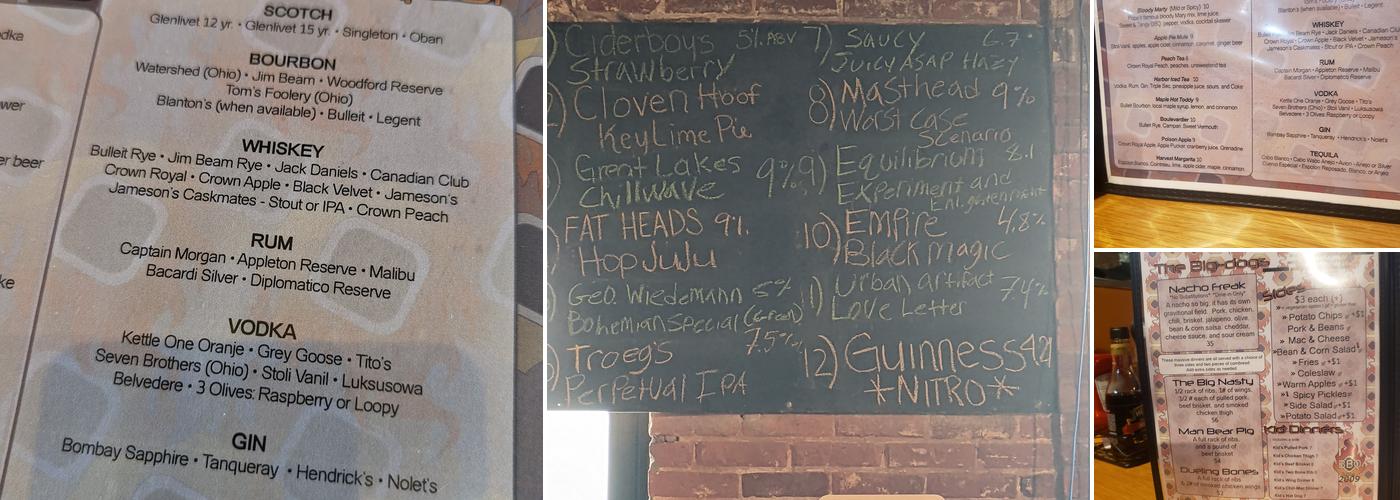 SCOTCH
Glenlivet 12 yr. • Glenlivet 15 yr. • Singleton • Oban
BOURBON
Watershed (Ohio) • Jim Beam • Woodford Reserve
Tom's Foolery (Ohio)
Blanton's (when available) • Bulleit • Legent
WHISKEY
Bulleit Rye • Jim Beam Rye • Jack Daniels • Canadian Club
Crown Royal • Crown Apple • Black Velvet • Jameson's
Jameson's Caskmates - Stout or IPA • Crown Peach
RUM
Captain Morgan • Appleton Reserve • Malibu
Bacardi Silver • Diplomatico Reserve
VODKA
Kettle One Oranje • Grey Goose • Tito's
Seven Brothers (Ohio) • Stoli Vanil • Luksusowa
Belvedere • 3 Olives: Raspberry or Loopy
GIN
Bombay Sapphire • Tanqueray • Hendrick's • Nolet's
er beer
Ciderboys 5% ABV
Strawberry
Cloven Hoof
Key Lime Pie
Great Lakes 9%
Chillwave
FAT HEADS 9%
Hop JuJu
Geo. Wiedemann 5%
Bohemian Special (Green)
Troegs 7.5%
Perpetual IPA
7) Saucy 6.7
Juicy ASAP Hazy
8) Masthead 9%
Worst Case
Scenario
9) Equilibrium 8.1
Experiment and
Enlightenment
10) Empire 4.8%
Black Magic
11) Urban Artifact 7.4%
Love Letter
12) Guinness 4.2
*NITRO*
Bloody Marty (Mild or Spicy) 10
Apple Pie Mule 9
Stoli Vanil, apples, apple cider, cinnamon, caramel, ginger beer
Peach Tea 8
Crown Royal Peach, peaches, unsweetend tea
Harbor Iced Tea 10
Vodka, Rum, Gin, Triple Sec, pineapple juice, sours, and Coke
Maple Hot Toddy 9
Bulleit Bourbon, local maple syrup, lemon, and cinnamon
Boulevardier 10
Bulleit Rye, Campari, Sweet Vermouth
Poison Apple 9
Crown Royal Apple, Apple Pucker, cranberry juice, Grenadine
Harvest Margarita 10
Blanton's (when available) • Bulleit • Legent
WHISKEY
Bulleit Rye • Jim Beam Rye • Jack Daniels • Canadian Club
Crown Royal • Crown Apple • Black Velvet • Jameson's
Jameson's Caskmates - Stout or IPA • Crown Peach
RUM
Captain Morgan • Appleton Reserve • Malibu
Bacardi Silver • Diplomatico Reserve
VODKA
Kettle One Oranje • Grey Goose • Tito's
Seven Brothers (Ohio) • Stoli Vanil • Luksusowa
Belvedere • 3 Olives Raspberry or Loopy
GIN
Bombay Sapphire • Tanqueray • Hendrick's • Nolet's
TEQUILA
The Big-dogs
Nacho Freak
*No Substitutions* *Dine-in Only*
A nacho so big, it has its own
gravitional field. Pork, chicken,
chili, brisket, jalapeno, olive,
bean & corn salsa, cheddar,
cheese sauce, and sour cream
35
These massive dinners are all served with a choice of
three sides and two pieces of cornbread
The Big Nasty
1/2 rack of ribs, 1# of wings,
1/2 # each of pulled pork,
beef brisket, and smoked
chicken thigh
56
Man Bear Pig
A full rack of ribs,
and a pound of
beef brisket
54
Dueling Bones
A full rack of ribs
& 2# of smoked chicken wings
Sides
$3 each (+)
» Potato Chips +$1
Pork & Beans
» Mac & Cheese
»Bean & Corn Salad
» Fries +$1
» Coleslaw
»Warm Apples +$1
» Spicy Pickles
» Side Salad +$1
»Potato Salad +$1
Kid Dinners
Kid's Pulled Pork
Kid's Chicken Thigh
Kid's Beef Brisket
Kid's Two Bone Rib
Kid's Wing Dinner
Kid's Chili-Mac Dinner
2009